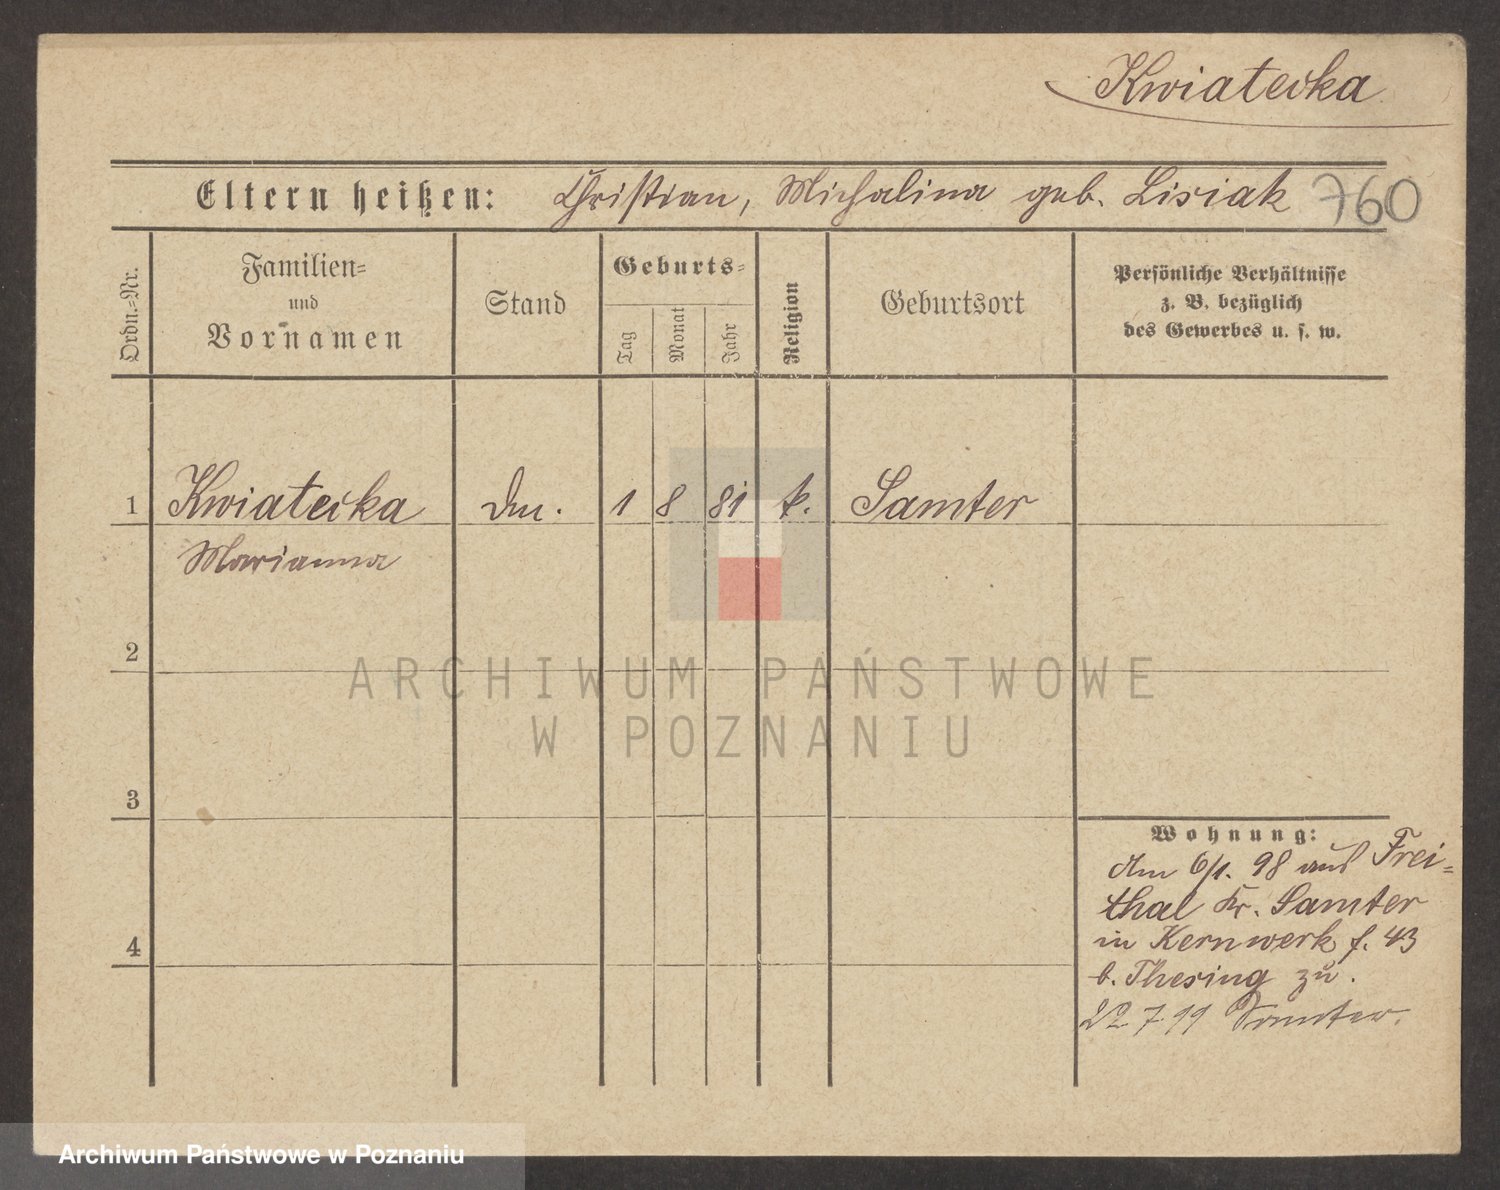 Kwiatecka
Eltern heißen: Christian, Michalina geb. Lisiak 760
Ordn.=Nr.
Familien=
und
Vornamen
Stand
Geburts=
Tag
Monat
Jahr
Religion
Geburtsort
Persönliche Verhältnisse
z. B. bezüglich
des Gewerbes u. s. w.
1 Kwiatecka 1 8 81 k. Samter
Marianna
2
3
4
Wohnung:
Am 6/1. 98 aus Frei=
thal Kr. Samter
in Kernwerk f. 43
b. Thesing zu.
22 7 99 Samter.
ARCHIWUM PAŃSTWOWE
W POZNANIU
Archiwum Państwowe w Poznaniu